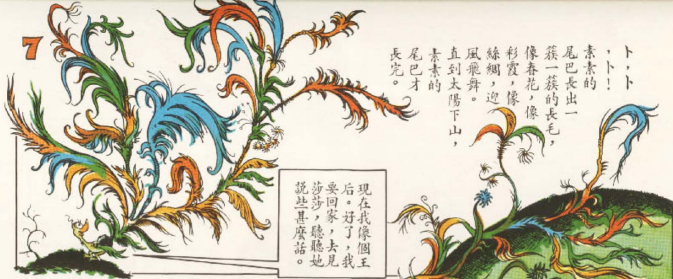 7
卜,卜
,卜!
素素的
尾巴長出一
簇一簇的長毛,
像春花,像
彩霞,像
絲綢,迎
風飄舞。
直到太陽下山,
素素的
尾巴才
長完。
現在我像個王
后。好了,我
要回家,去見
莎莎,聽聽她
說些甚麼話。